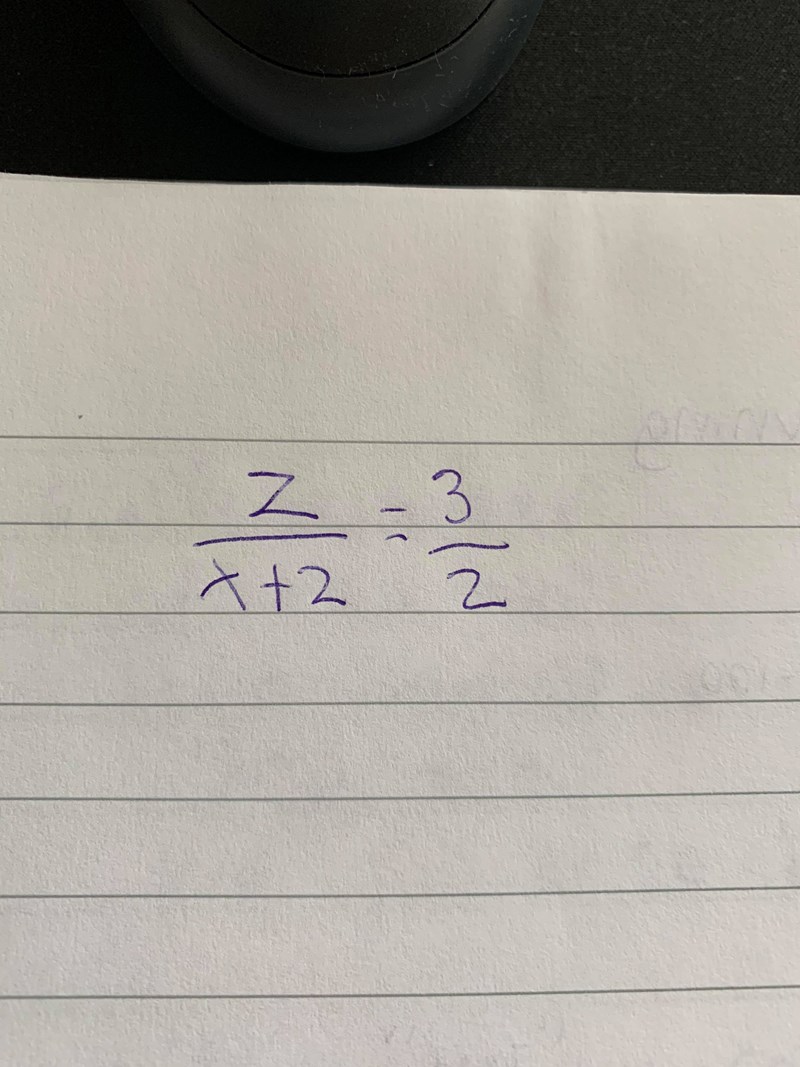 z/(x+2) = 3/2